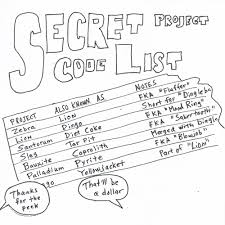 SECRET PROJECT
CODE LIST
PROJECT ALSO KNOWN AS NOTES
Zebra Lion FKA "Fluffer"
Lion Dingo Short for "Dingleb
Llon Diet Coke FKA "Mood Ring"
Santorum Tar Pit FKA "Sabertooth"
Slag Coprolith Merged with Dingle
Bauxite Pyrite FKA "Blowjob"
Palladium Yellowjacket Part of "Lion"
Thanks
for the
peek
That'll be
a dollar